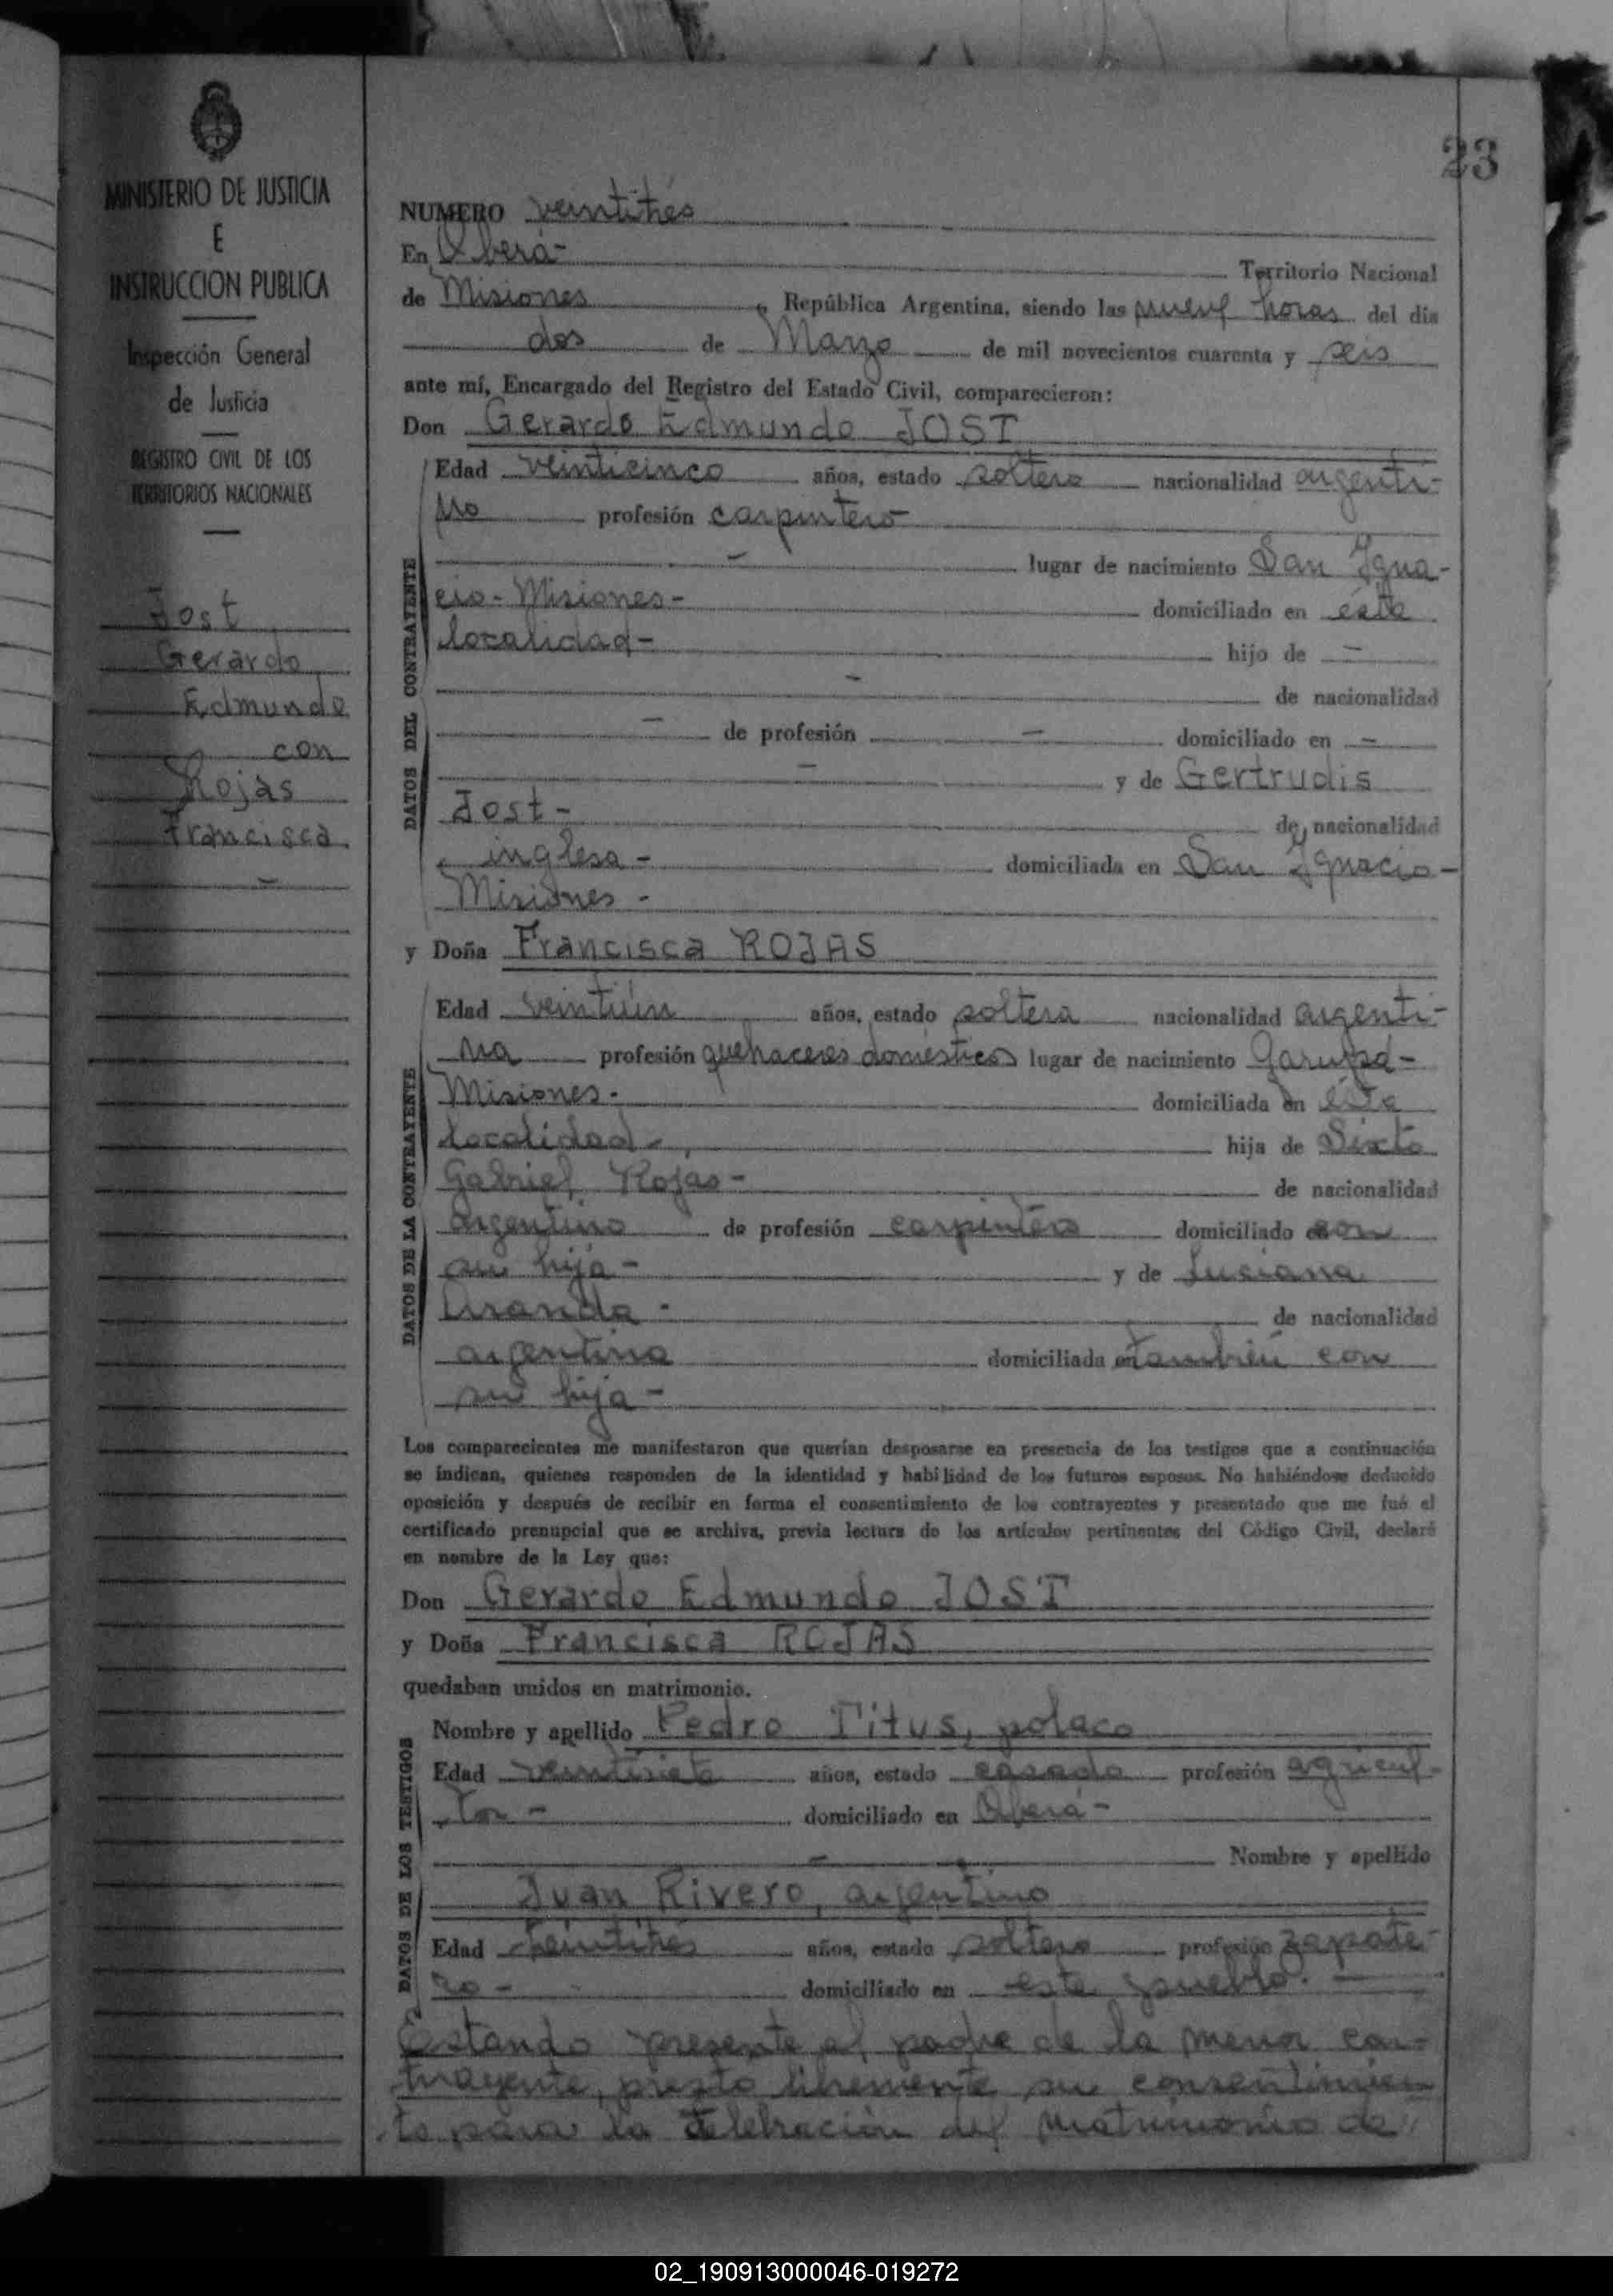 23
MINISTERIO DE JUSTICIA
E
INSTRUCCION PUBLICA
Inspección General
de Justicia
REGISTRO CIVIL DE LOS
TERRITORIOS NACIONALES
Jost
Gerardo
Edmundo
con
Rojas
Francisca
NUMERO veintitrés
En Oberá- Territorio Nacional
de Misiones, República Argentina, siendo las nueve horas del día
dos de Marzo de mil novecientos cuarenta y seis
ante mí, Encargado del Registro del Estado Civil, comparecieron:
Don Gerardo Edmundo JOST
DATOS DEL CONTRAYENTE
Edad veinticinco años, estado soltero nacionalidad argenti-
no profesión carpintero
- lugar de nacimiento San Igna-
cio- Misiones- domiciliado en ésta
localidad- hijo de -
- de nacionalidad
- de profesión - domiciliado en -
- y de Gertrudis
Jost- de nacionalidad
inglesa- domiciliada en San Ignacio-
Misiones-
y Doña Francisca ROJAS
DATOS DE LA CONTRAYENTE
Edad veintiún años, estado soltera nacionalidad argenti-
na profesión quehaceres domésticos lugar de nacimiento Garupá-
Misiones- domiciliada en ésta
localidad- hija de Sixto
Gabriel Rojas- de nacionalidad
argentino de profesión carpintero domiciliado con
su hija- y de Luciana
Aranda- de nacionalidad
argentina domiciliada en también con
su hija-
Los comparecientes me manifestaron que querían desposarse en presencia de los testigos que a continuación
se indican, quienes responden de la identidad y habilidad de los futuros esposos. No habiéndose deducido
oposición y después de recibir en forma el consentimiento de los contrayentes y presentado que me fué el
certificado prenupcial que se archiva, previa lectura de los artículos pertinentes del Código Civil, declaré
en nombre de la Ley que:
Don Gerardo Edmundo JOST
y Doña Francisca ROJAS
quedaban unidos en matrimonio.
DATOS DE LOS TESTIGOS
Nombre y apellido Pedro Titus, polaco
Edad veintisiete años, estado casado profesión agricul-
tor- domiciliado en Oberá-
- Nombre y apellido
Juan Rivero, argentino
Edad veintitrés años, estado soltero profesión zapate-
ro- domiciliado en este pueblo.-
Estando presente el padre de la menor con-
trayente, prestó libremente su consentimien
to para la celebración del matrimonio de
02_190913000046-019272